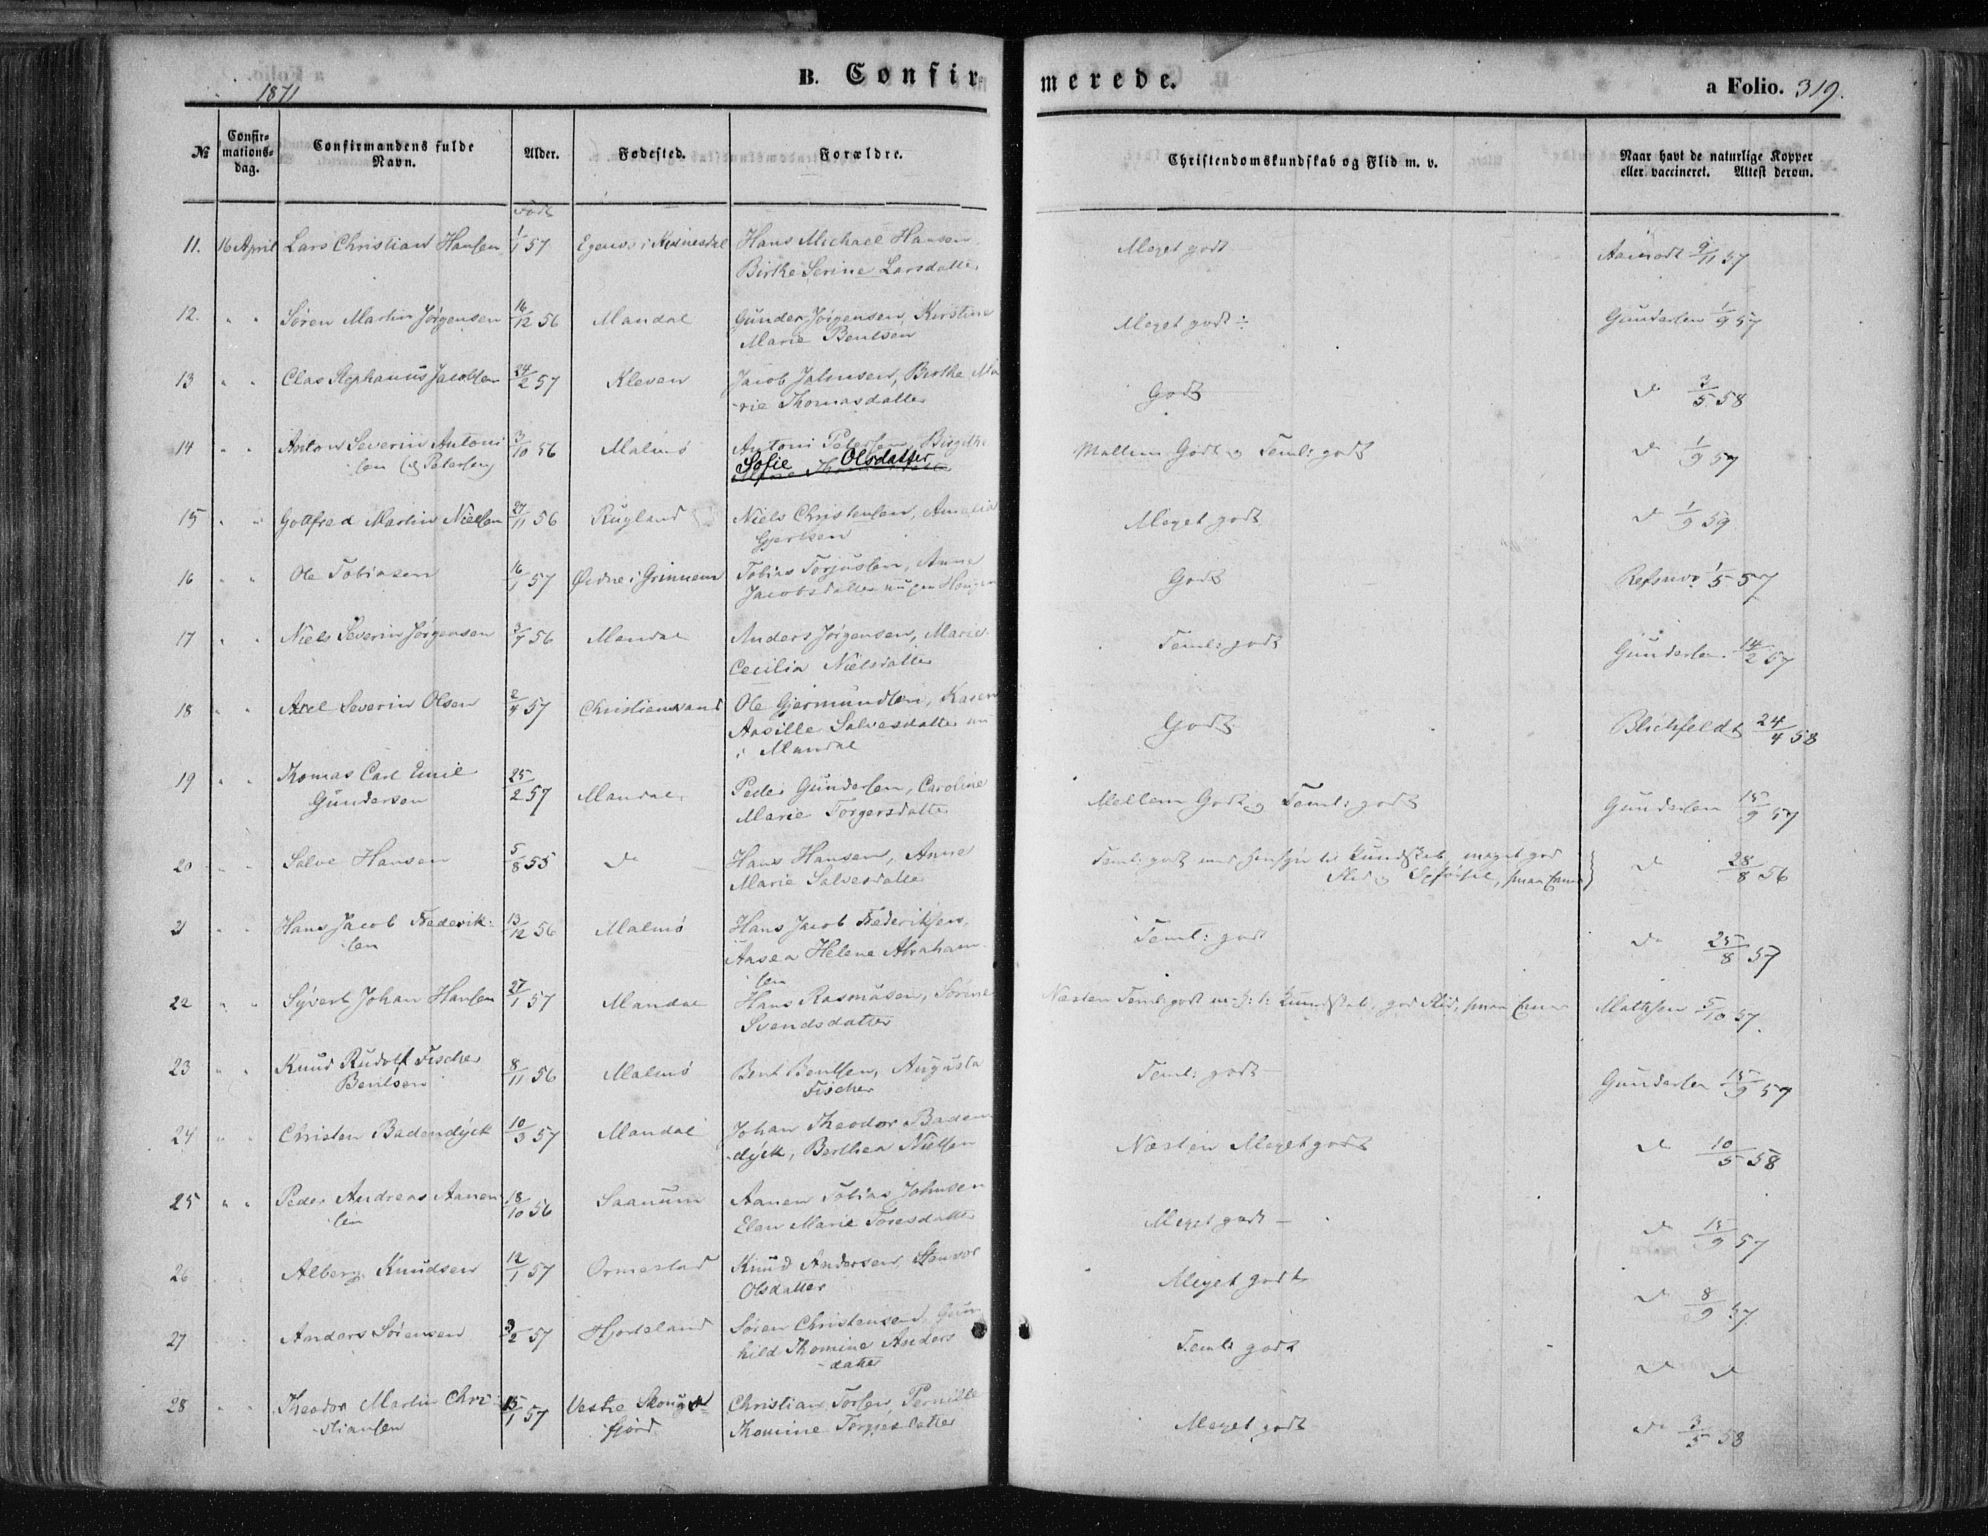 1871
B. Confirmerede.
a Folio. 319.
№
Confirmations-dag.
Confirmandens fulde Navn.
Alder.
Fødested.
Forældre.
Christendomskundskab og Flid m. v.
Naar havt de naturlige Kopper eller vaccineret. Attest derom.
Født
11. 16 April Lars Christian Hansen 1/1 57 i Hans Michael Hansen Meget godt 9/11 57
Birthe Serine Larsdatter
12. " " Søren Martin Jørgensen 16/12 56 Mandal Gunder Jørgensen, Kirstine Meget godt ÷ Gundersen 1/9 57
Marie Bentsen
13 " " Clas Stephanus Jacobsen 24/2 57 Kleven Jacob Jahnsen, Birthe Ma Godt do 3/5 58
-rie Thomasdatter
14 " " Anton Severin Antoni 3/10 56 Malmø Antoni Petersen, Birgithe Mellem Godt og Teml: godt do 1/9 57
sen (og Petersen) Sofie Olsdatter
15 " " Gottfred Martin Nielsen 27/11 56 Rugland Niels Christensen, Amalia Meget godt do 1/9 59
Gjertsen
16 " " Ole Tobiasen 16/1 57 Øidne i Grinnem Tobias Torjussen, Anne Godt 1/5 57
Jacobsdatter
17 " " Niels Severin Jørgensen 3/7 56 Mandal Anders Jørgensen, Marie Teml: godt Gundersen 14/2 57
Cecilia Nielsdatter
18 " " Axel Severin Olsen 2/4 57 Christianssand Ole Gjermundsen, Karen Godt Blichfeldt 24/4 58
Aasille Salvesdatter nu
i Mandal
19 " " Thomas Carl Emil 25/2 57 Mandal Peder Gundersen, Caroline Mellem Godt og Teml: godt Gundersen 15/9 57
Gundersen Marie Torgersdatter
20 " " Salve Hansen 5/8 55 do Hans Hansen, Anne Teml: godt med Hensyn til Kundskab, meget god do 28/8 56
Marie Salvesdatter Flid og Opførsel, smaa Evner
21 " " Hans Jacob Frederik- 13/12 56 Malmø Hans Jacob Frederiksen, Teml: godt do 25/8 57
sen Aasea Helene Abraham
sen
22 " " Syvert Johan Hansen 27/1 57 Mandal Hans Rasmusen, Sørine Næsten Teml: godt m. H. t. Kundskab, god Flid, smaa Evner Mathisen 5/10 57.
Svendsdatter
23 " " Knud Rudolf Fischer 8/11 56 Malmø Bent Bentsen, Augusta Teml: godt Gundersen 15/9 57
Bentsen Fischer
24 " " Christen Badendyck 10/3 57 Mandal Johan Theodor Baden Næsten Meget godt do 10/5 58
-dyck, Berthea Nielsen
25 " " Peder Andreas Aanen 18/10 56 Saanum Aanen Tobias Johnsen Meget godt do 15/9 57
sen Elen Marie Toresdatter
26 Alberg Knudsen 12/1 57 Ormestad Knud Andersen, Meget godt do 8/9 57
Olsdatter
27 Anders Sørensen 3/2 57 Hjorteland Søren Christensen, Gun Teml: godt do do
hild Thomine Anders
-datter
28 " " Theodor Martin Chri 15/1 57 Vestre Skougs Christian Torsen, Pernille Meget godt do 3/5 58
-stiansen fjord Thomine Torgjesdatter